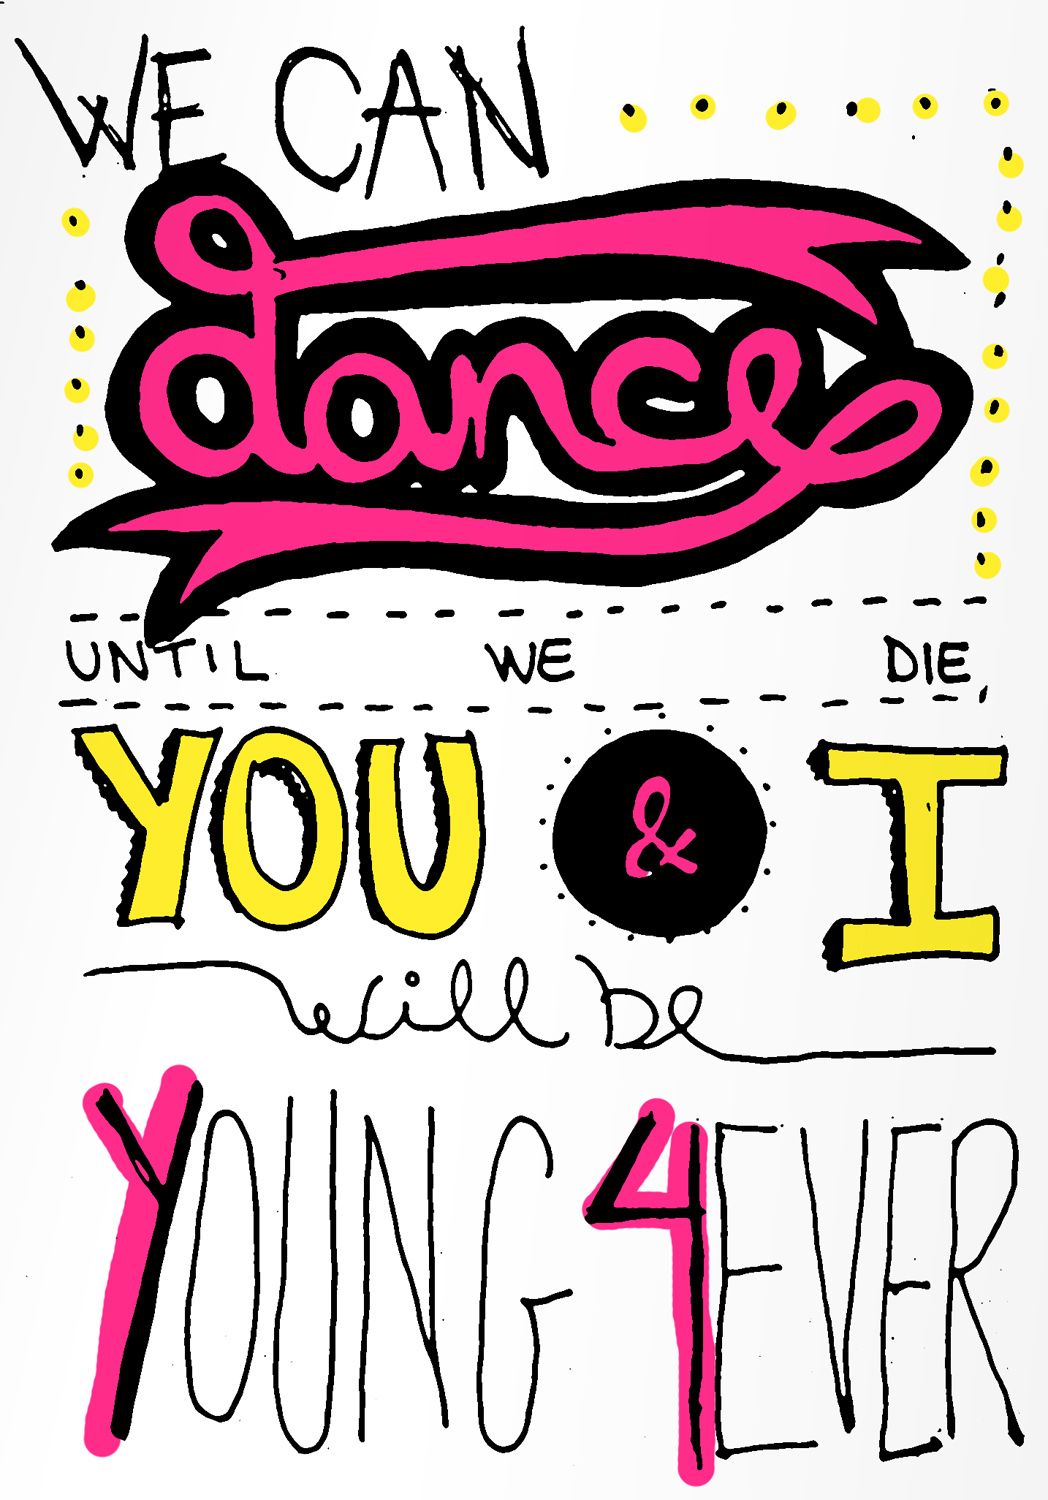 WE CAN
dance
UNTIL WE DIE,
YOU & I
will be
YOUNG 4EVER